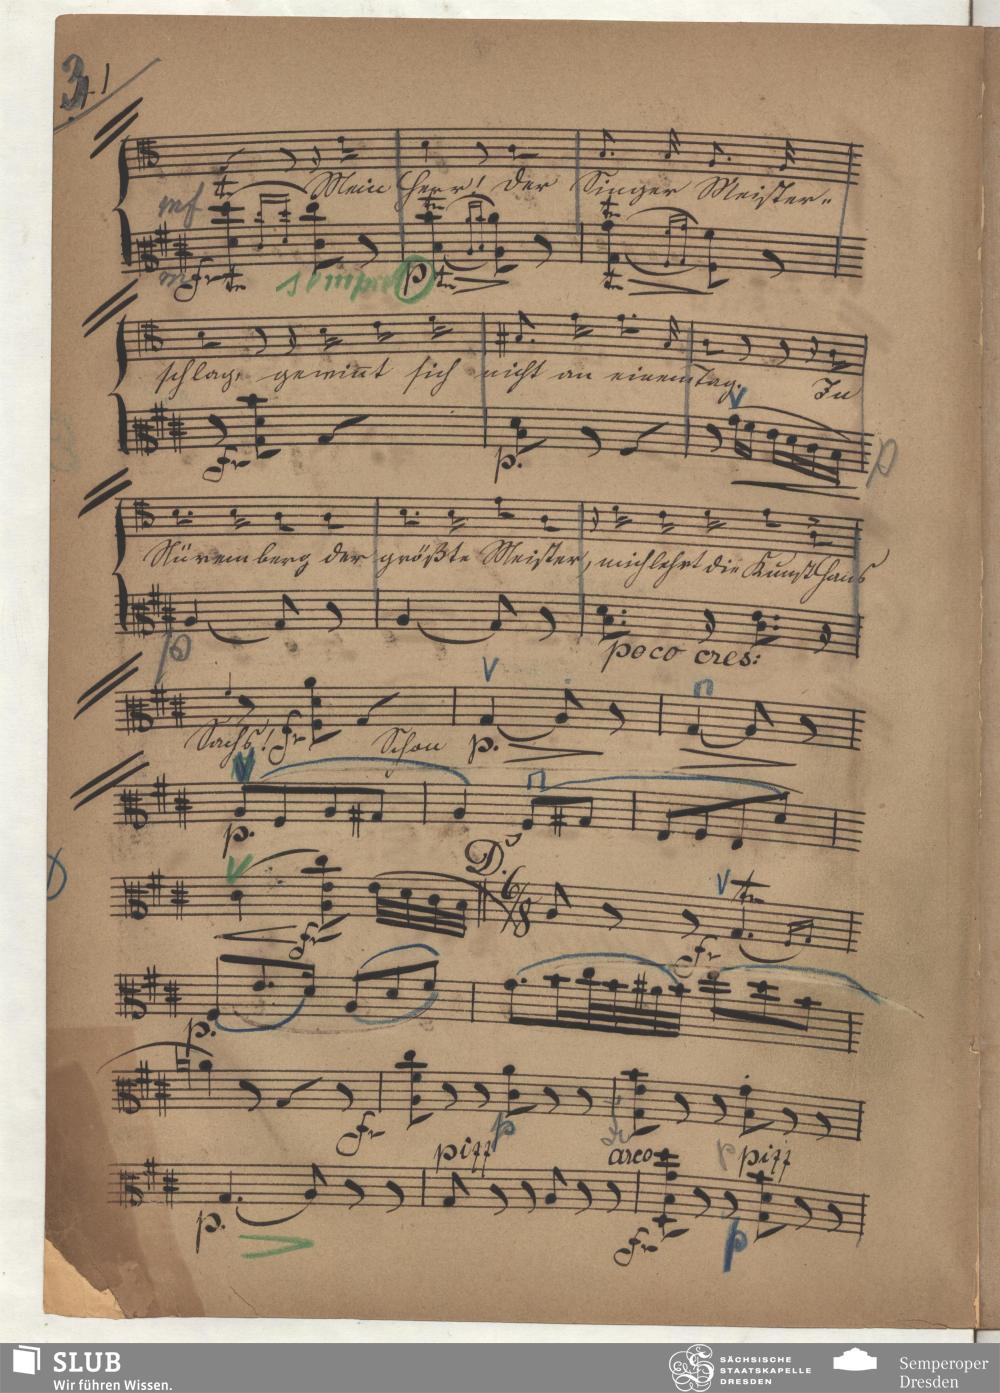 31
Mein Herr! der Singer Meister-
mf
semper p
schlag, gewinnt sich nicht an einem Tag. In
p.
p
Nüremberg der größte Meister, mich lehrt die Kunst Hans
p
poco cres:
Sachs! Schon p.
p.
D. 6/8
tr
p.
p
pizz arco pizz
p.
p
SLUB
Wir führen Wissen.
SÄCHSISCHE
STAATSKAPELLE
DRESDEN
Semperoper
Dresden